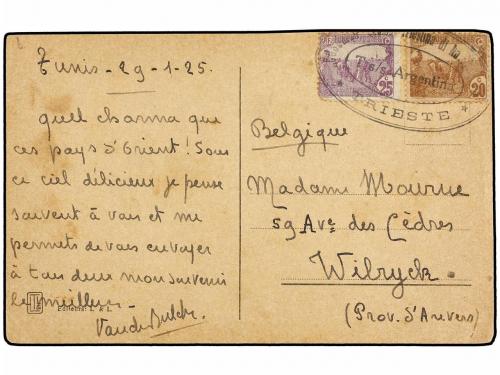 Tunis - 29-1-25.
quel charme que
ces pays d'Orient! Sous
ce ciel délicieux je pense
souvent à vous et me
permets de vous envoyer
à tous deux mon souvenir
le meilleur.
Editeurs: L. & L.
25
20
Trs/s Argentina
TRIESTE
Belgique
Madame Mourue
59 Ave des Cèdres
Wilryck.
(Prov. d'Anvers)